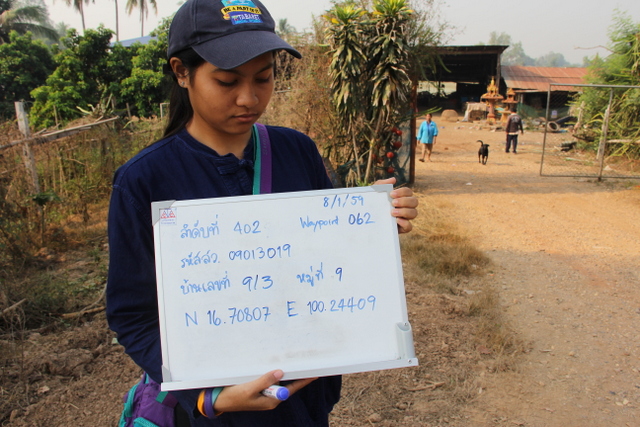 BE A PART OF IT
8/1/59
ลำดับที่ 402 Waypoint 062
รหัสสว. 09013019
บ้านเลขที่ 9/3 หมู่ที่ 9
N 16.70807 E 100.24409